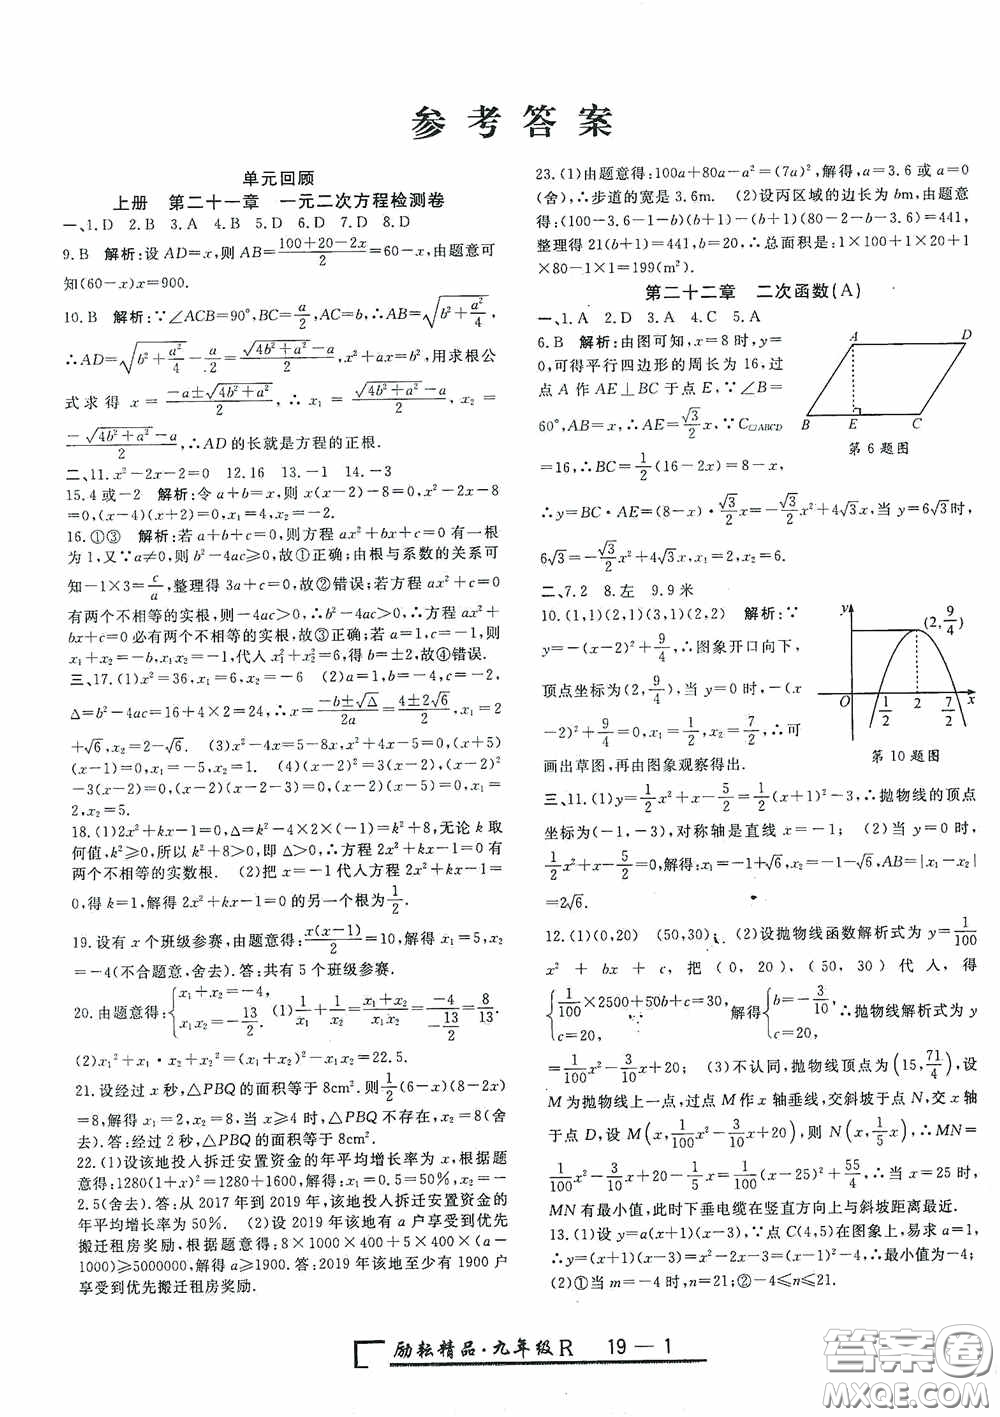 参考答案
单元回顾
上册 第二十一章 一元二次方程检测卷
一、1.D 2.B 3.A 4.B 5.D 6.D 7.D 8.D
9.B 解析:设AD=x,则AB=(100+20-2x)/2=60-x,由题意可
知(60-x)x=900.
10.B 解析:∵∠ACB=90°,BC=a/2,AC=b,∴AB=√(b²+a²/4)
∴AD=√(b²+a²/4)-a/2=(√(4b²+a²)-a)/2,x²+ax=b²,用求根公
式求得 x=(-a±√(4b²+a²))/2,∴x₁=(√(4b²+a²)-a)/2,x₂=
-(√(4b²+a²)-a)/2,∴AD的长就是方程的正根.
二、11.x²-2x-2=0 12.16 13.-1 14.-3
15.4或-2 解析:令a+b=x,则x(x-2)-8=0,x²-2x-8
=0,(x-4)(x+2)=0,x₁=4,x₂=-2.
16.①③ 解析:若a+b+c=0,则方程ax²+bx+c=0有一根
为1,又∵a≠0,则b²-4ac≥0,故①正确;由根与系数的关系可
知-1×3=c/a,整理得3a+c=0,故②错误;若方程ax²+c=0
有两个不相等的实根,则-4ac>0,∴b²-4ac>0,∴方程ax²+
bx+c=0必有两个不相等的实根,故③正确;若a=1,c=-1,则
x₁+x₂=-b,x₁x₂=-1,代入x₁²+x₂²=6,得b=±2,故④错误.
三、17.(1)x²=36,x₁=6,x₂=-6 (2)a=1,b=-4,c=-2,
Δ=b²-4ac=16+4×2=24,∴x=(-b±√Δ)/2a=(4±2√6)/2,x₁=2
+√6,x₂=2-√6. (3)x²-4x=5-8x,x²+4x-5=0,(x+5)
(x-1)=0,x₁=-5,x₂=1. (4)(x-2)²=3(x-2),(x-2)²
-3(x-2)=0,(x-2)(x-2-3)=0,(x-2)(x-5)=0,x₁=
2,x₂=5.
18.(1)2x²+kx-1=0,Δ=k²-4×2×(-1)=k²+8,无论k取
何值,k²≥0,所以k²+8>0,即Δ>0,∴方程2x²+kx-1=0有
两个不相等的实数根. (2)把x=-1代入方程2x²+kx-1=
0,得k=1,解得2x²+kx-1=0的另一个根为1/2.
19.设有x个班级参赛,由题意得:x(x-1)/2=10,解得x₁=5,x₂
=-4(不合题意,舍去).答:共有5个班级参赛.
20.由题意得:{x₁+x₂=-4, x₁x₂=-13/2. (1)1/x₁+1/x₂=(x₁+x₂)/(x₁x₂)=-4/(-13/2)=8/13.
(2)x₁²+x₁·x₂+x₂²=(x₁+x₂)²-x₁x₂=22.5.
21.设经过x秒,△PBQ的面积等于8cm².则1/2(6-x)(8-2x)
=8,解得x₁=2,x₂=8,当x≥4时,△PBQ不存在,x₂=8(舍
去).答:经过2秒,△PBQ的面积等于8cm².
22.(1)设该地投入拆迁安置资金的年平均增长率为x,根据题
意得:1280(1+x)²=1280+1600,解得x₁=0.5=50%,x₂=-
2.5(舍去).答:从2017年到2019年,该地投入拆迁安置资金的
年平均增长率为50%. (2)设2019年该地有a户享受到优先
搬迁租房奖励,根据题意得:8×1000×400+5×400×(a-
1000)≥5000000.解得a≥1900.答:2019年该地至少有1900户
享受到优先搬迁租房奖励.
23.(1)由题意得:100a+80a-a²=(7a)²,解得,a=3.6或a=0
(舍),∴步道的宽是3.6m. (2)设丙区域的边长为bm,由题意
得:(100-3.6-1-b)(b+1)-(b+1)(80-2-2-3.6-b)=441,
整理得21(b+1)=441,b=20∴总面积是:1×100+1×20+1
×80-1×1=199(m²).
第二十二章 二次函数(A)
一、1.A 2.D 3.A 4.C 5.A
6.B 解析:由图可知,x=8时,y=
0,可得平行四边形的周长为16,过
点A作AE⊥BC于点E,∵∠B=
60°,AB=x,∴AE=√3/2 x,∵C▱ABCD
=16,∴BC=1/2(16-2x)=8-x,
A D
B E C
第6题图
∴y=BC·AE=(8-x)·√3/2 x=-√3/2 x²+4√3x,当y=6√3时,
6√3=-√3/2 x²+4√3x,x₁=2,x₂=6.
二、7.2 8.左 9.9米
10.(1,1)(2,1)(3,1)(2,2) 解析:∵
y=-(x-2)²+9/4,∴图象开口向下,
顶点坐标为(2,9/4),当y=0时,-(x
-2)²+9/4=0,x₁=1/2,x₂=7/2,∴可
画出草图,再由图象观察得出.
y (2,9/4)
O 1/2 2 7/2 x
第10题图
三、11.(1)y=1/2x²+x-5/2=1/2(x+1)²-3,∴抛物线的顶点
坐标为(-1,-3),对称轴是直线x=-1; (2)当y=0时,
1/2x²+x-5/2=0,解得:x₁=-1+√6,x₂=-1-√6,AB=|x₁-x₂|
=2√6.
12.(1)(0,20) (50,30) (2)设抛物线函数解析式为y=1/100
x²+bx+c,把(0,20),(50,30)代入,得
{1/100×2500+50b+c=30, c=20, 解得{b=-3/10, c=20, ∴抛物线解析式为y
=1/100x²-3/10x+20; (3)不认同,抛物线顶点为(15,71/4),设
M为抛物线上一点,过点M作x轴垂线,交斜坡于点N,交x轴
于点D,设M(x,1/100x²-3/10x+20),则N(x,1/5x),∴MN=
1/100x²-3/10x+20-1/5x=1/100(x-25)²+55/4,∴当x=25时,
MN有最小值,此时下垂电缆在竖直方向上与斜坡距离最近.
13.(1)设y=a(x+1)(x-3),∵点C(4,5)在图象上,易求a=1,
∴y=(x+1)(x-3)=x²-2x-3=(x-1)²-4,∴最小值为-4;
(2)①当m=-4时,n=21;②-4≤n≤21.
励耘精品·九年级R 19—1
答案圈
MXQE.COM